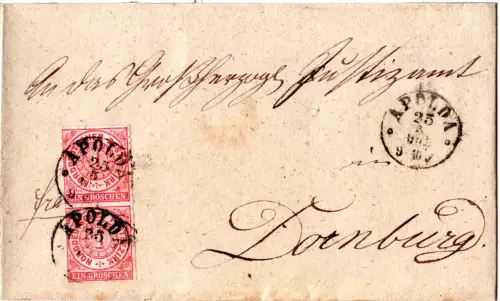 An das Großherzogl Justizamt
in
Dornburg.
frco
APOLDA
25
5
9
APOLDA
25
5
9
EIN GROSCHEN
APOLDA
25
EIN GROSCHEN